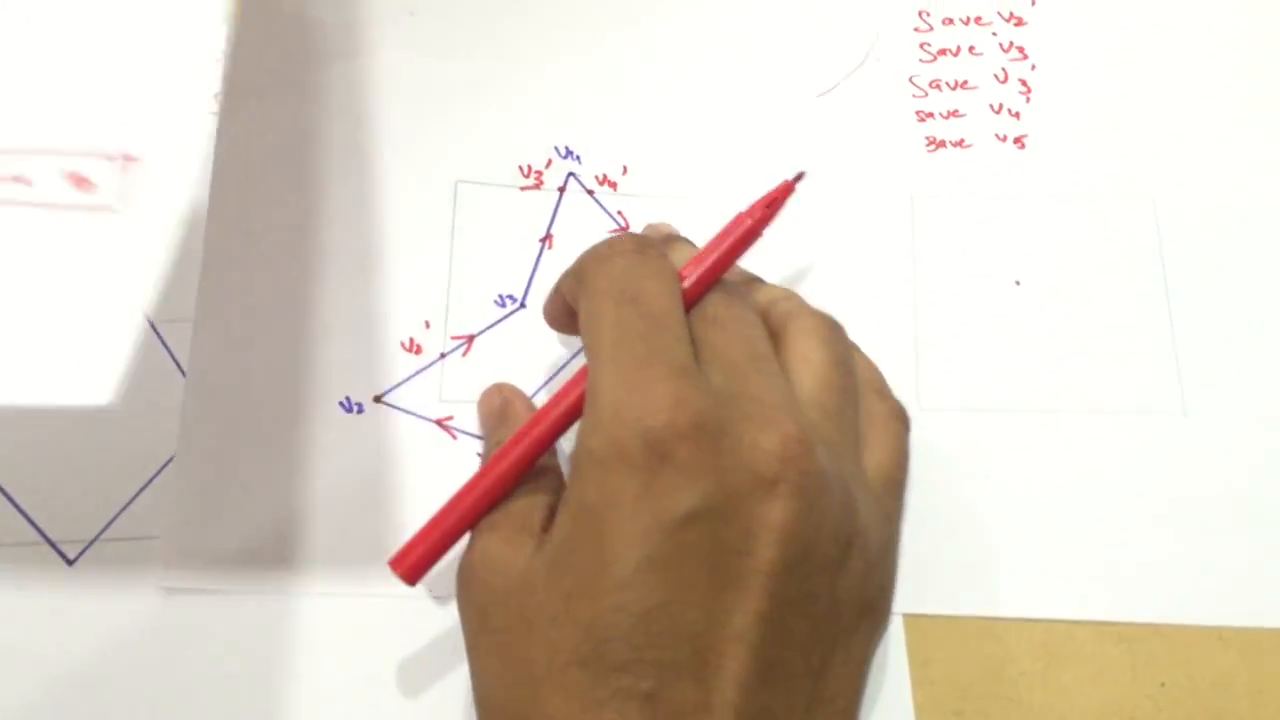 Save v2'
Save v3
Save v3'
save v4'
save v5
v4
v3'
v4'
v3
v2'
v2